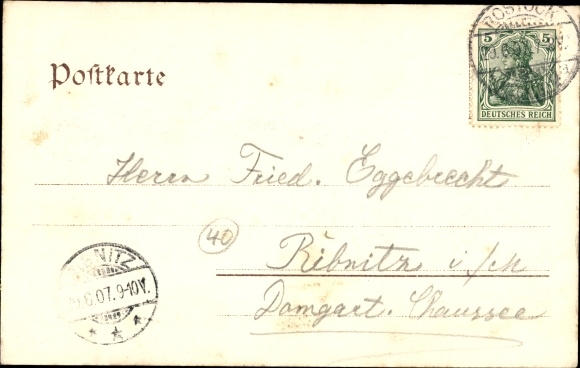 ROSTOCK
5 5
DEUTSCHES REICH
Poſtkarte
Herrn Fried. Eggebrecht
40
Ribnitz i/M
Damgart. Chaussee
BNITZ
6.07. 9-10V.